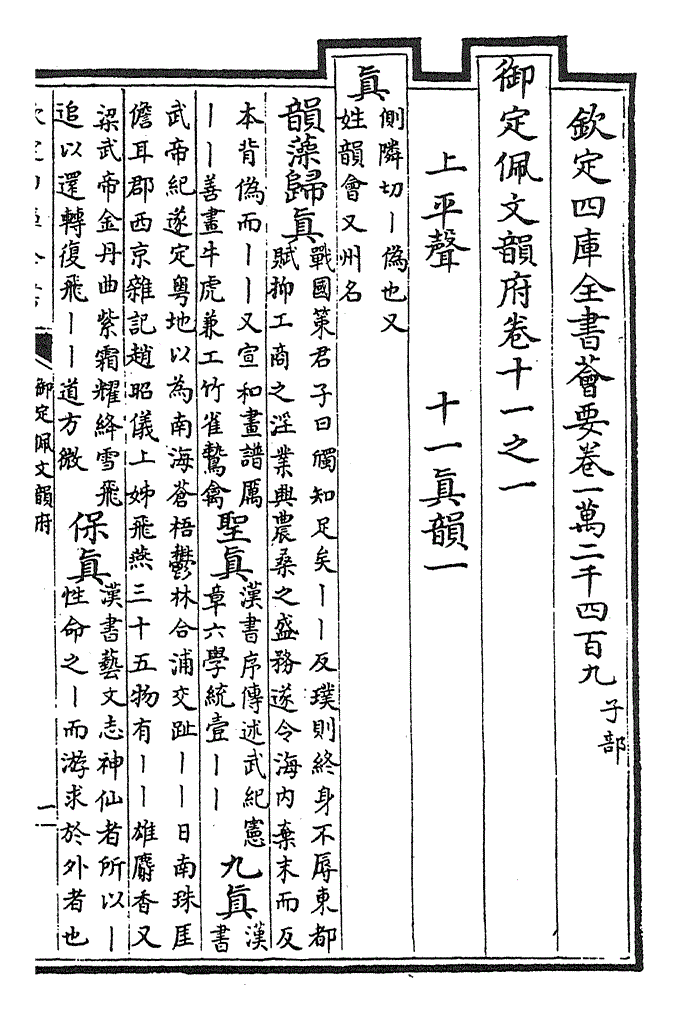 欽定四庫全書薈要卷一萬二千四百九 子部
御定佩文韻府卷十一之一
上平聲 十一眞韻一
眞
側隣切丨偽也又
姓韻會又州名
韻藻歸眞
戰國策君子曰斶知足矣丨丨反璞則終身不辱東都
賦抑工商之淫業興農桑之盛務遂令海内棄末而反
本背偽而丨丨又宣和畫譜厲
丨丨善畫牛虎兼工竹雀鷙禽
聖眞
漢書序傳述武紀憲
章六學統壹丨丨
九眞
漢
書
武帝紀遂定粵地以為南海蒼梧鬱林合浦交趾丨丨日南珠厓
儋耳郡西京雜記趙昭儀上姊飛燕三十五物有丨丨雄麝香又
梁武帝金丹曲紫霜耀絳雪飛
追以還轉復飛丨丨道方微
保眞
漢書藝文志神仙者所以丨
性命之丨而游求於外者也
御定佩文韻府
一